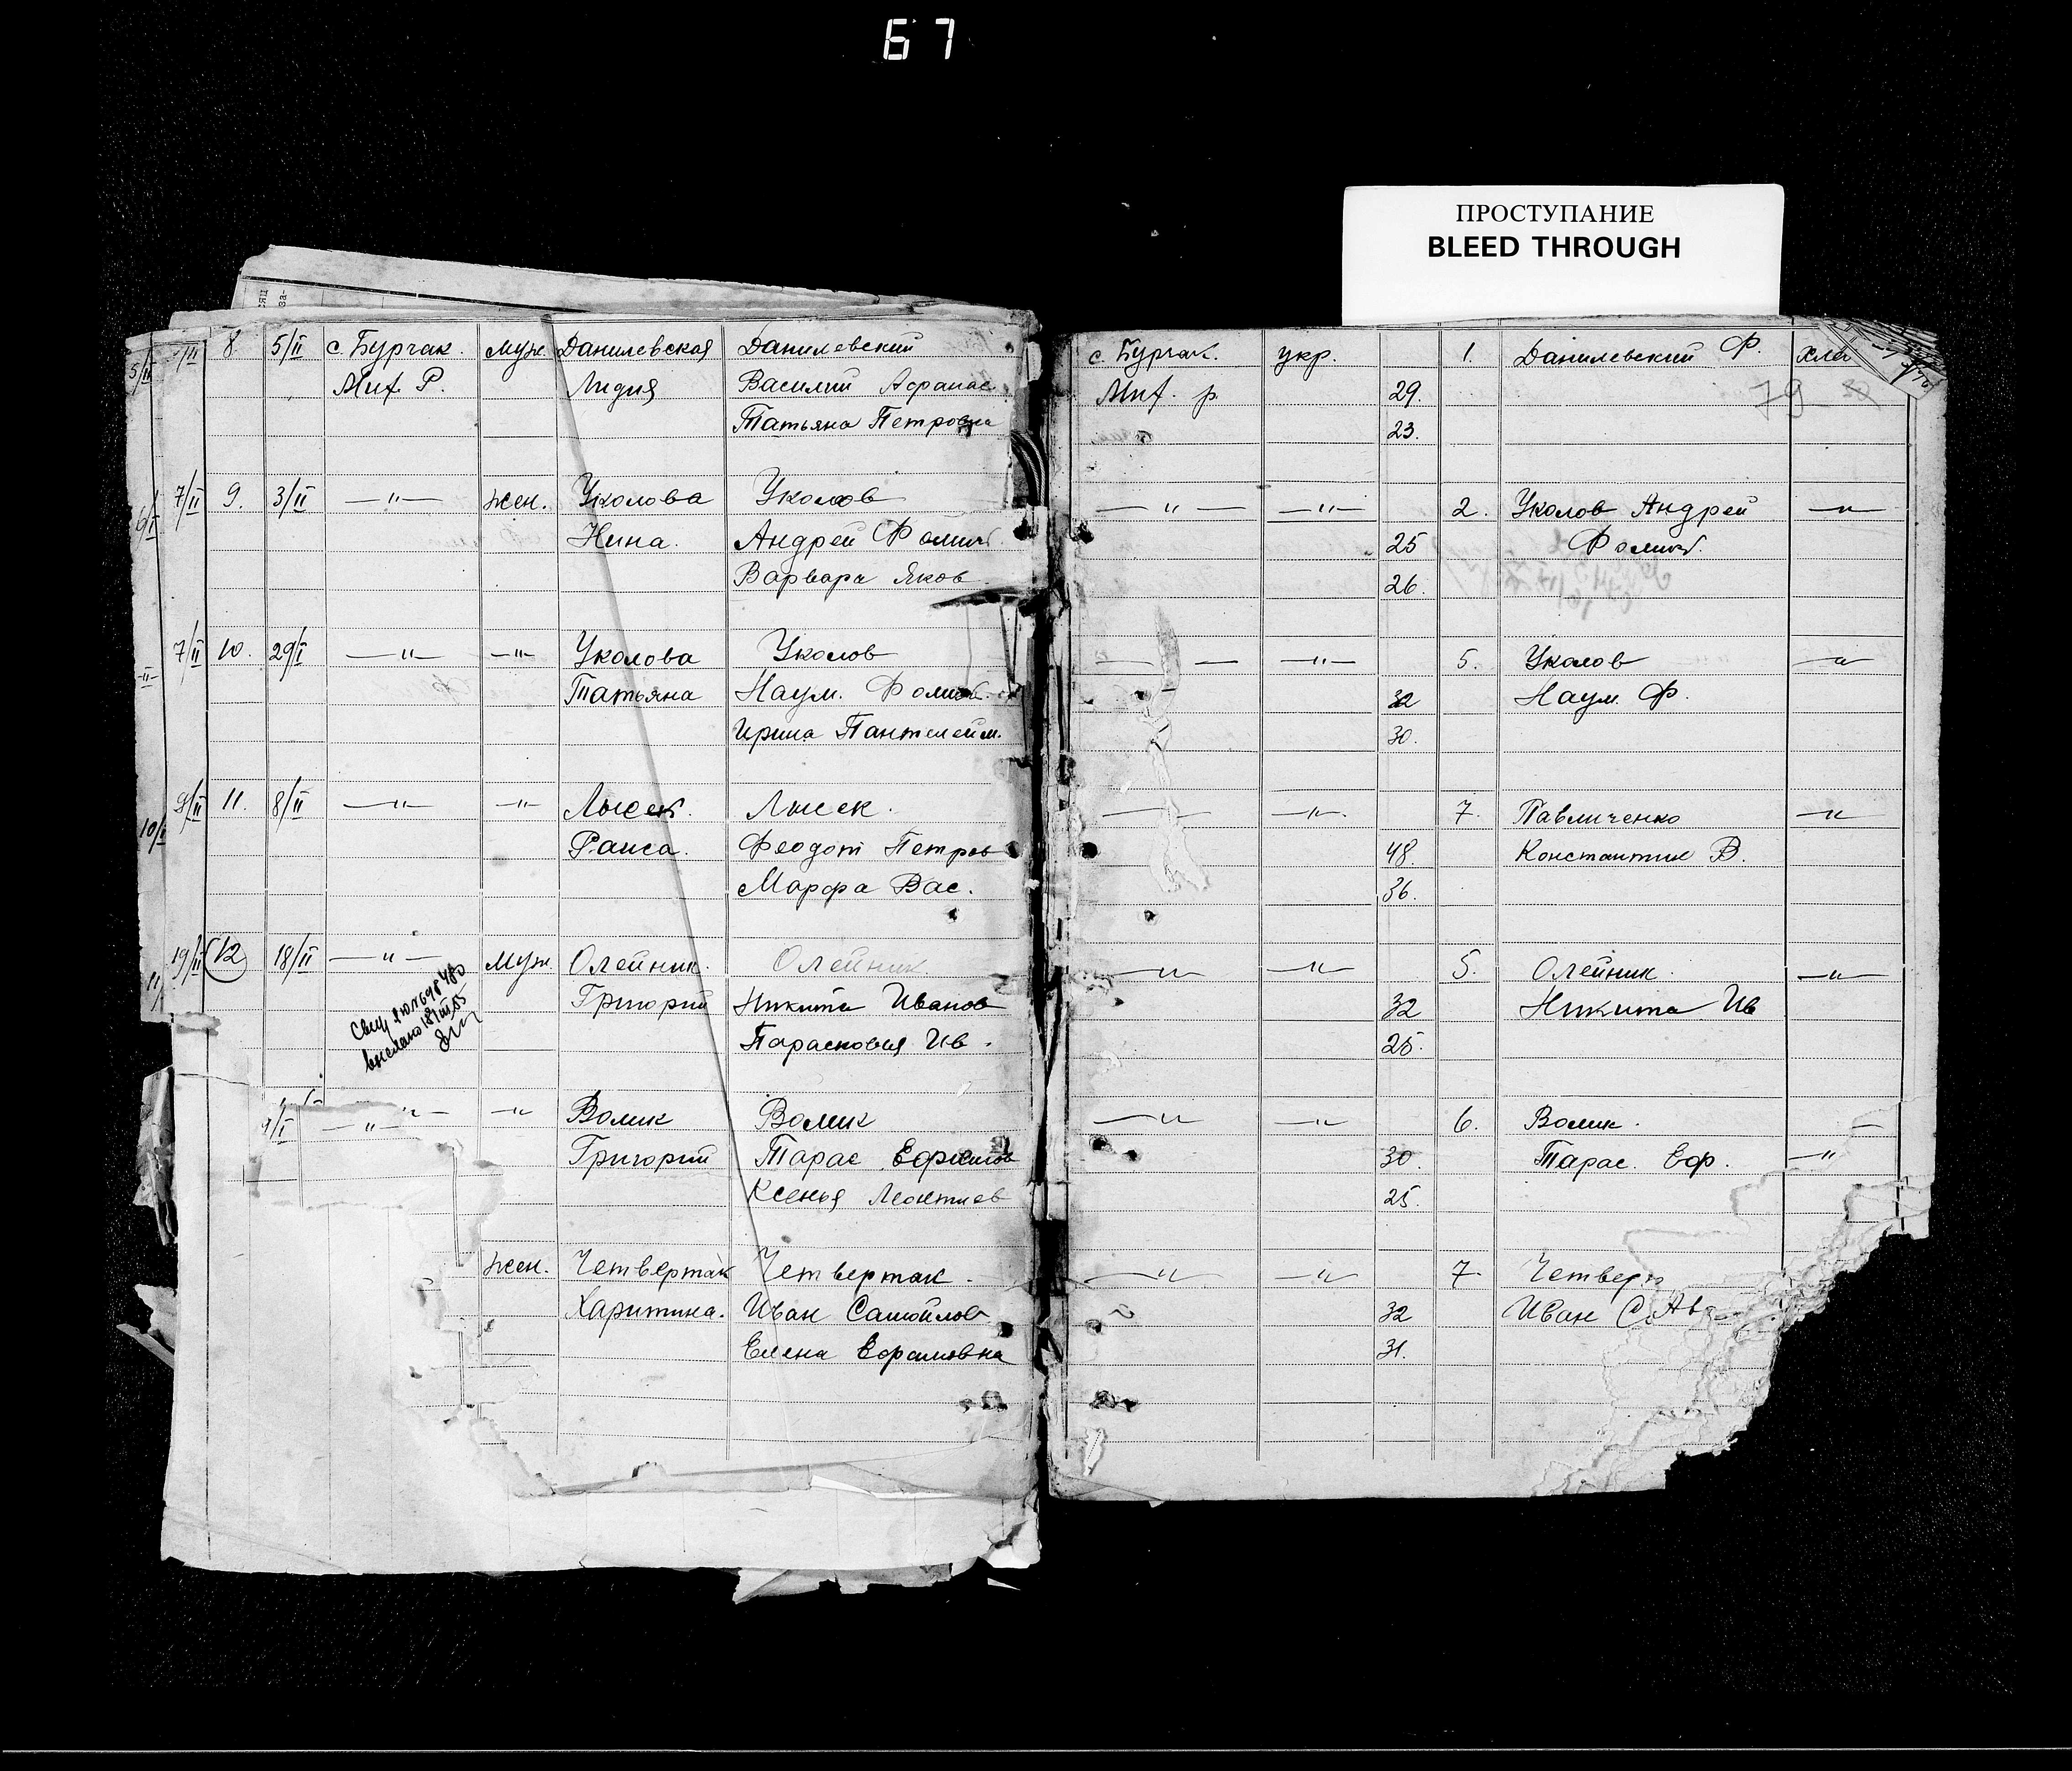 67
ПРОСТУПАНИЕ
BLEED THROUGH
5/II 7/II 8 5/II с. Бурчак. муж. Данилевская Данилевский
Мих. Р. Лидия Василий Афанас
Татьяна Петровна
6/I 7/II 9. 3/II —"— жен. Уколова Уколов
Нина. Андрей Фомич.
Варвара Яков.
—"— 7/II 10. 29/I —"— —"— Уколова Уколов
Татьяна Наум. Фомич.
Ирина Пантелейм.
10/II 9/II 11. 8/II —"— —"— Лысек. Лысек.
Раиса. Феодот Петров
Марфа Вас.
19/II 12 18/II —"— муж. Олейник. Олейник
Григорий Никита Иванов
Парасковия Ив.
выслано 18/III 85
—"— —"— Волик Волик
—"—
Григорий Тарас Ефимов
Ксенья Леонтиев
жен. Четвертак Четвертак.
Харитина. Иван Самойлов
Елена Ефимовна
с. Бурчак. укр. 1. Данилевский Ф. хлеб
Мих. р. 29.
79
23.
—"— —"— 2. Уколов Андрей —"—
25 Фомич.
26.
— — —"— 5. Уколов —"—
32 Наум. Ф.
30.
—"— 7. Павличенко —"—
48. Константин В.
36.
—"— —"— 5. Олейник. —"—
32 Никита Ив
25.
—"— —"— 6. Волик.
30. Тарас. Еф. —"—
25.
—"— —"— 7. Четвер
32 Иван
31.